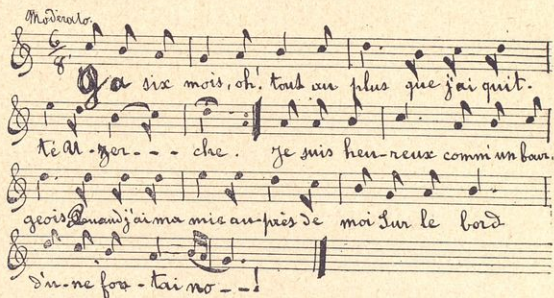 Moderato.
6/8
Ya six mois, oh! tout au plus que j'ai quit-
té Uzer - - - che. Je suis heu-reux comm' un bour
geois Quand j'ai ma mie au-près de moi Sur le bord
d'u-ne fon-tai no - - !